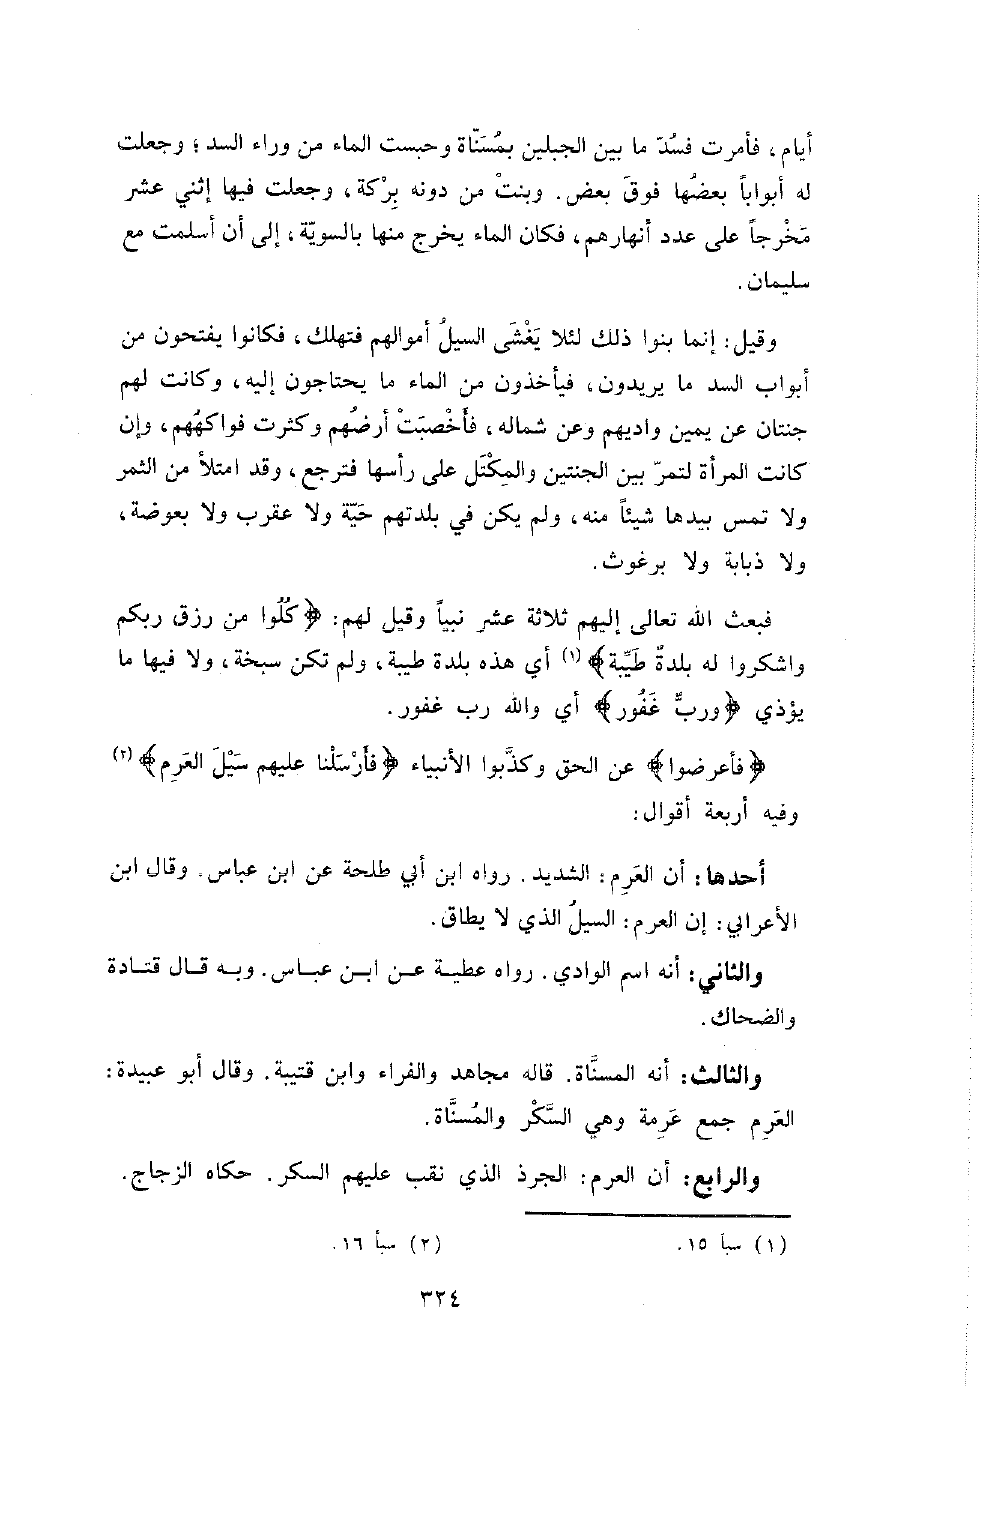 أيام، فأمرت فسُدّ ما بين الجبلين بمُسَنَّاة وحبست الماء من وراء السد؛ وجعلت
له أبواباً بعضُها فوقَ بعض. وبنتْ من دونه بِرْكة، وجعلت فيها إثني عشر
مَخْرجاً على عدد أنهارهم، فكان الماء يخرج منها بالسويّة، إلى أن أسلمت مع
سليمان.
وقيل: إنما بنوا ذلك لئلا يَغْشَى السيلُ أموالهم فتهلك، فكانوا يفتحون من
أبواب السد ما يريدون، فيأخذون من الماء ما يحتاجون إليه، وكانت لهم
جنتان عن يمين واديهم وعن شماله، فأَخْصبَتْ أرضُهم وكثرت فواكهُهم، وإن
كانت المرأة لتمرّ بين الجنتين والمِكْتَل على رأسها فترجع، وقد امتلأ من الثمر
ولا تمس بيدها شيئاً منه، ولم يكن في بلدتهم حَيّة ولا عقرب ولا بعوضة،
ولا ذبابة ولا برغوث.
فبعث الله تعالى إليهم ثلاثة عشر نبياً وقيل لهم: ﴿كُلُوا من رزق ربكم
واشكروا له بلدةٌ طَيِّبة﴾ (١) أي هذه بلدة طيبة، ولم تكن سبخة، ولا فيها ما
يؤذي ﴿وربٌّ غَفُور﴾ أي والله رب غفور.
﴿فأعرضوا﴾ عن الحق وكذَّبوا الأنبياء ﴿فأَرْسَلْنا عليهم سَيْلَ العَرِم﴾ (٢)
وفيه أربعة أقوال:
أحدها: أن العَرِم: الشديد. رواه ابن أبي طلحة عن ابن عباس. وقال ابن
الأعرابي: إن العرم: السيلُ الذي لا يطاق.
والثاني: أنه اسم الوادي. رواه عطية عن ابن عباس. وبه قال قتادة
والضحاك.
والثالث: أنه المسنَّاة. قاله مجاهد والفراء وابن قتيبة. وقال أبو عبيدة:
العَرِم جمع عَرِمة وهي السَّكْر والمُسنَّاة.
والرابع: أن العرم: الجرذ الذي نقب عليهم السكر. حكاه الزجاج.
(١) سبأ ١٥. (٢) سبأ ١٦.
٣٢٤